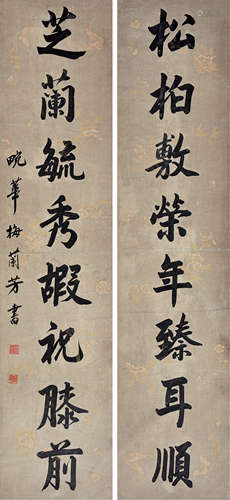 松柏敷榮年臻耳順
芝蘭毓秀嘏祝膝前
畹華梅蘭芳書